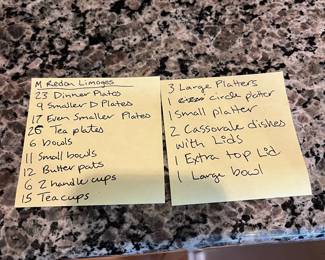 M Redon Limoges
23 Dinner Plates
9 Smaller D Plates
17 Even Smaller Plates
26 Tea plates
6 bowls
11 Small bowls
12 Butter pats
6 2 handle cups
15 Teacups
3 Large Platters
1 circle platter
1 Small platter
2 Cassorale dishes
with Lids
1 Extra top Lid
1 Large bowl